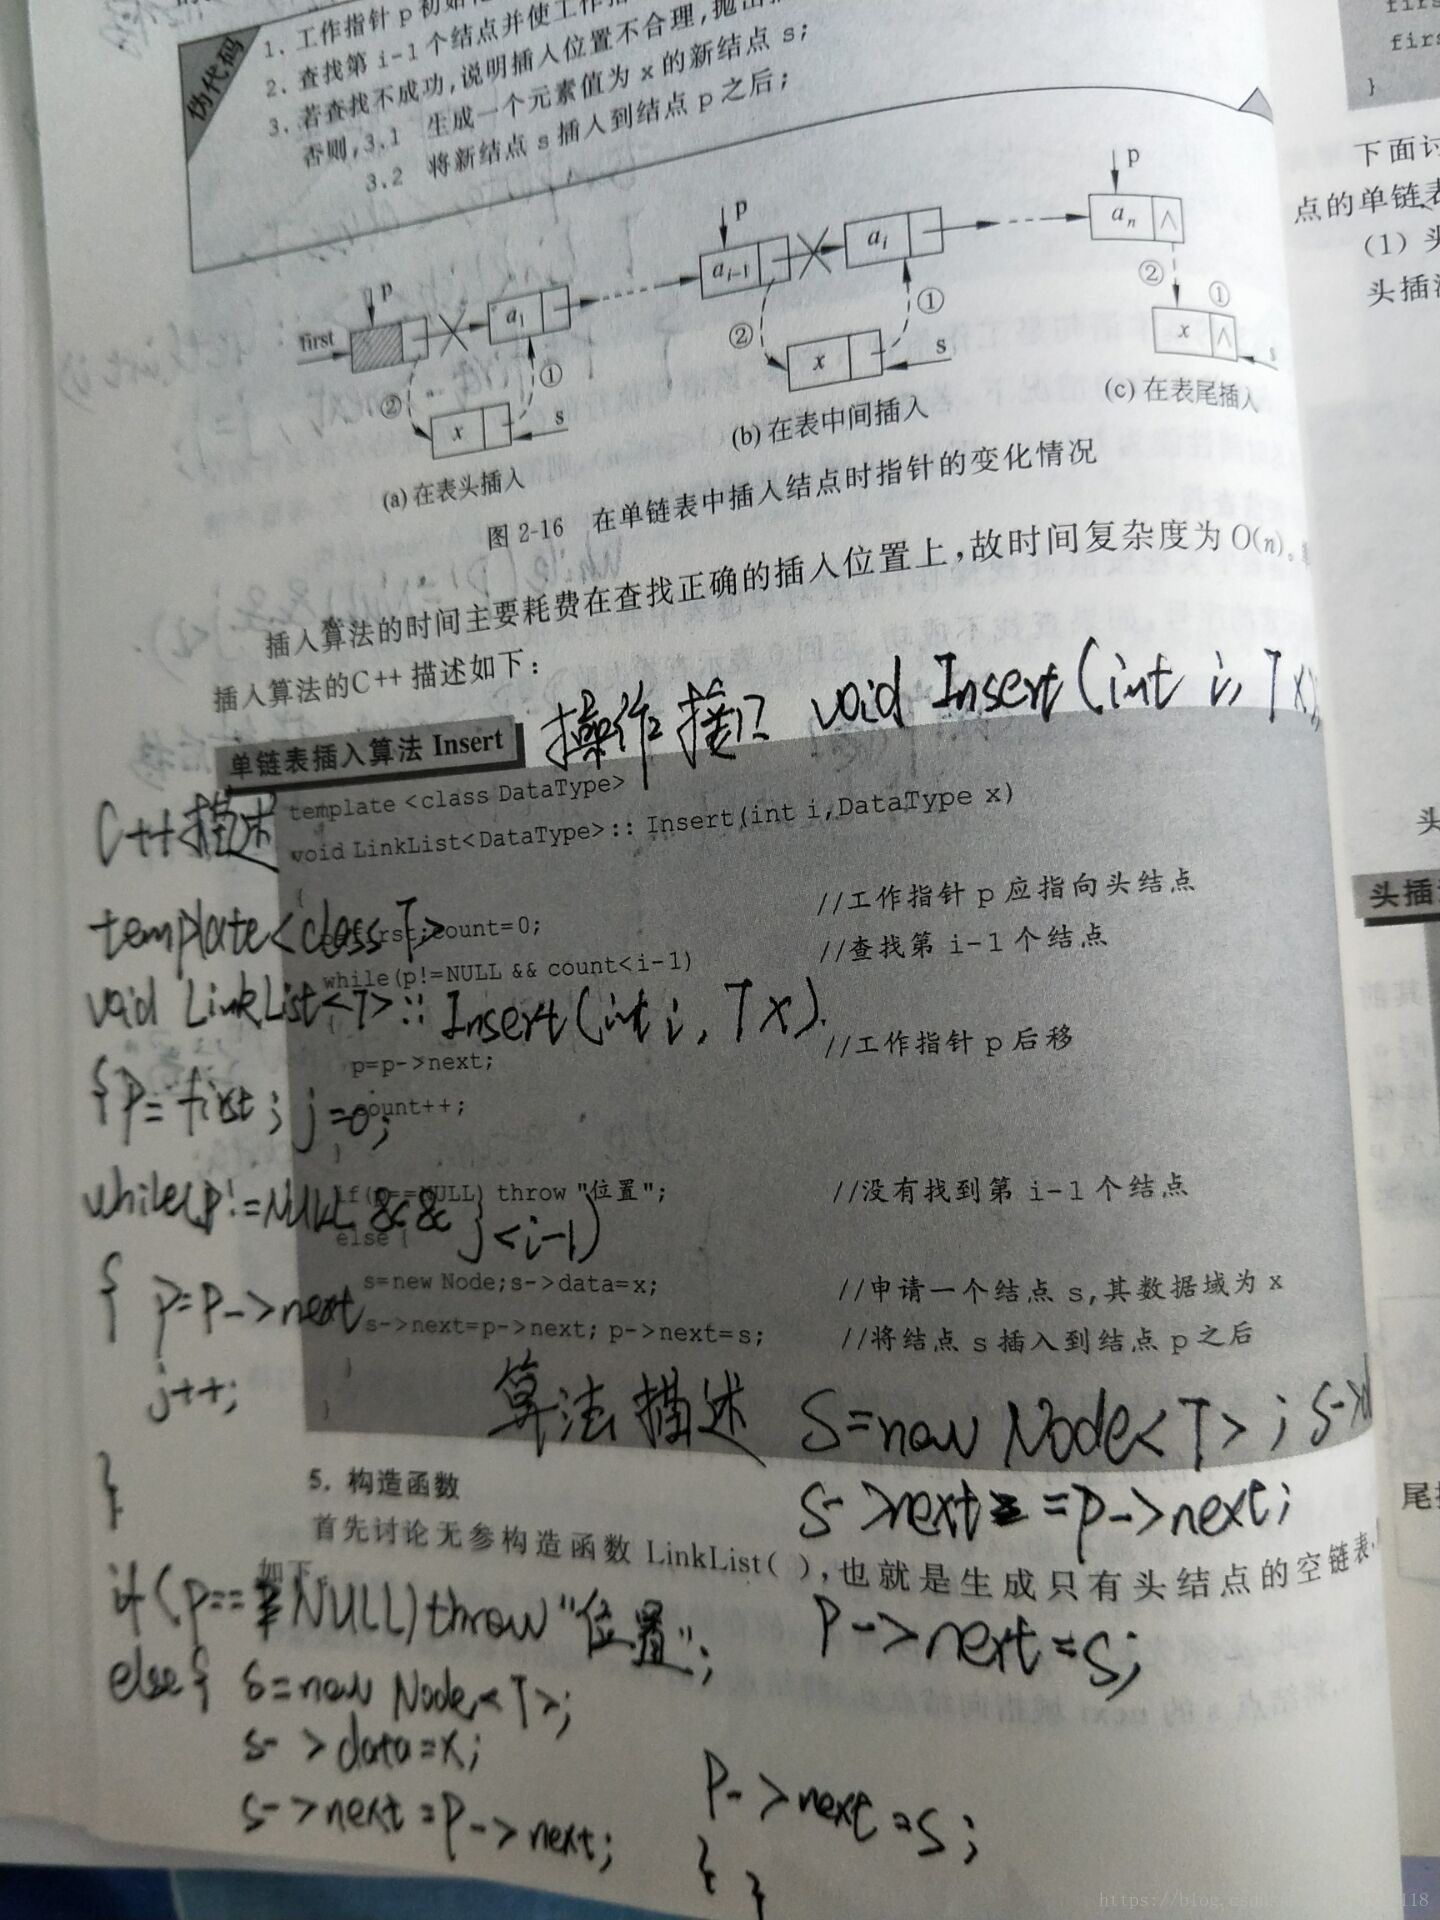 伪代码
1. 工作指针 p 初始化
2. 查找第 i-1 个结点并使工作指
3. 若查找不成功,说明插入位置不合理,抛出
否则,3.1 生成一个元素值为 x 的新结点 s;
3.2 将新结点 s 插入到结点 p 之后;
first p a1 x s ① ②
p ai-1 ai x s ① ②
p an ∧ x ∧ s ① ②
(a) 在表头插入
(b) 在表中间插入
(c) 在表尾插入
图 2-16 在单链表中插入结点时指针的变化情况
插入算法的时间主要耗费在查找正确的插入位置上,故时间复杂度为 O(n)。
插入算法的C++ 描述如下:
操作接口 void Insert(int i, T x)
单链表插入算法 Insert
template <class DataType>
void LinkList<DataType>:: Insert(int i,DataType x)
{
count=0; //工作指针 p 应指向头结点
while(p!=NULL && count<i-1) //查找第 i-1 个结点
p=p->next; //工作指针 p 后移
count++;
}
if(p==NULL) throw "位置"; //没有找到第 i-1 个结点
else {
s=new Node;s->data=x; //申请一个结点 s,其数据域为 x
s->next=p->next; p->next=s; //将结点 s 插入到结点 p 之后
}
}
C++描述
template<class T>
void LinkList<T>:: Insert(int i, T x).
{ p= first; j=0;
while(p!=NULL && j<i-1)
{ p=p->next
j++;
}
if(p==NULL) throw "位置";
else{ s=new Node<T>;
s->data=x;
s->next=p->next;
p->next=s;
} }
算法描述 s=new Node<T>; s->
s->next==p->next;
p->next=s;
5. 构造函数
首先讨论无参构造函数 LinkList( ),也就是生成只有头结点的空链表,
如下
下面讨
点的单链表
(1) 头
头插法
头
头插
尾
https://blog.csd
118